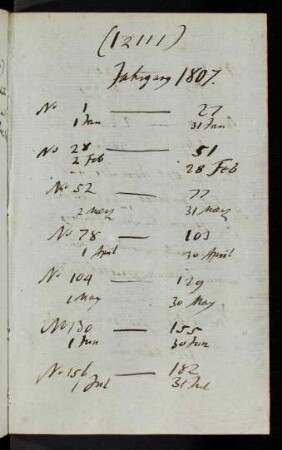 (12111)
Jahrgang 1807.
No 1 — 27
1 Jan 31 Jan
No 28 — 51
2 Feb 28 Feb
No 52 — 77
2 März 31 März
No 78 — 103
1 April 30 April
No 104 — 129
1 May 30 May
No 130 — 155
1 Jun 30 Jun
No 156 — 182
1 Jul 31 Jul